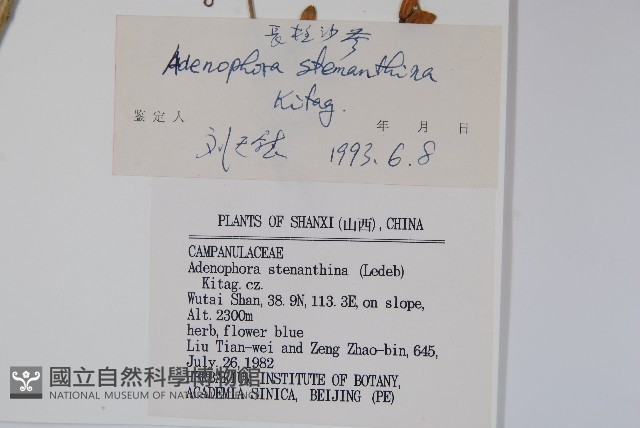 長柱沙参
Adenophora stenanthina
Kitag.
鉴定人 年 月 日
1993.6.8
PLANTS OF SHANXI(山西), CHINA
CAMPANULACEAE
Adenophora stenanthina (Ledeb)
Kitag. cz.
Wutai Shan, 38.9N, 113.3E, on slope,
Alt. 2300m
herb, flower blue
Liu Tian-wei and Zeng Zhao-bin, 645,
July. 26, 1982
INSTITUTE OF BOTANY,
ACADEMIA SINICA, BEIJING (PE)
國立自然科學博物館
NATIONAL MUSEUM OF NATURAL SCIENCE